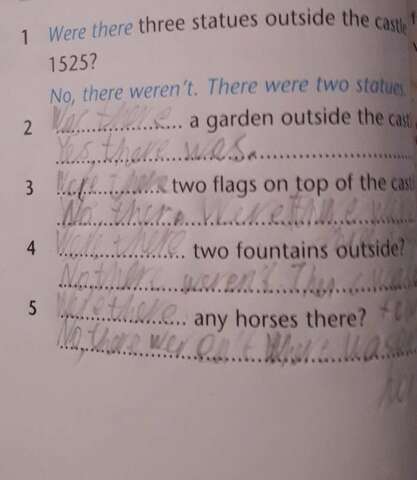 1 Were there three statues outside the castle
1525?
No, there weren't. There were two statues.
2 Was there a garden outside the cast
Yes, there was.
3 Were there two flags on top of the cast
No, there
4 Were there two fountains outside?
No there weren't. Ther
5 Were there any horses there?
No, there weren't